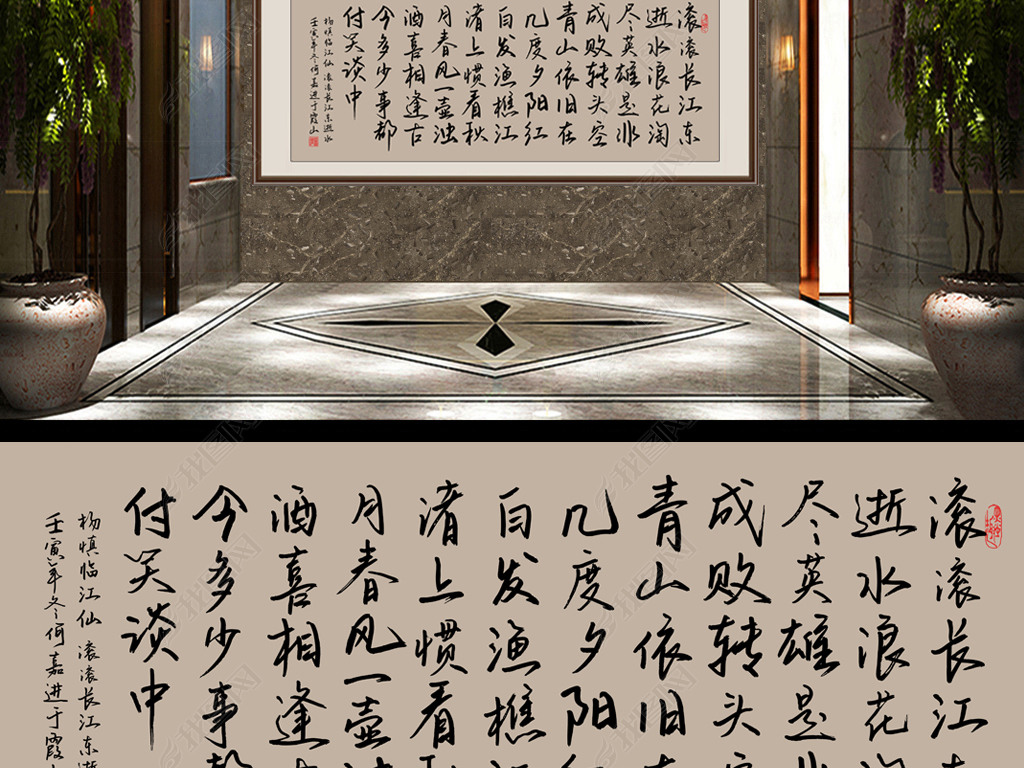 滚滚长江东
逝水浪花淘
尽英雄是非
成败转头空
青山依旧在
几度夕阳红
白发渔樵江
渚上惯看秋
月春风一壶浊
酒喜相逢古
今多少事都
付笑谈中
杨慎临江仙 滚滚长江东逝水
壬寅年冬何嘉进于霞山
滚滚长江
逝水浪花
尽英雄是
成败转头
青山依旧
几度夕阳
白发渔樵
渚上惯看
月春风一壶
酒喜相逢
今多少事
付笑谈中
杨慎临江仙 滚滚长江东
壬寅年冬何嘉进于霞